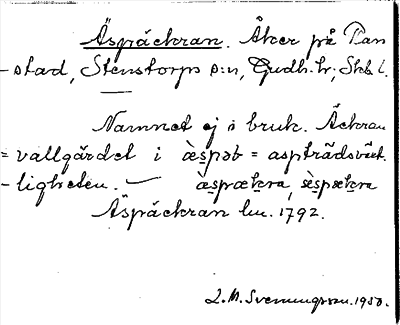 Äspäckran. Åker på Pan
-stad, Stenstorps s:n, Gudh. hr, Skbs l.
Namnet ej i bruk. Äckran
= vallgärdet i æ̀s̱pəb = aspträdsväxt
-ligheten. — æ̀s̱pæḵra, sæ̀s̱pæḵra
Äspäckran lm. 1792.
L.M. Svenungsson. 1930.